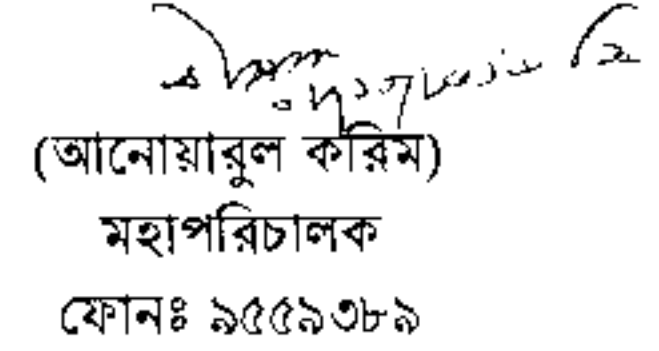 (আনোয়ারুল করিম)
মহাপরিচালক
ফোনঃ ৯৫৫৯৩৮৯